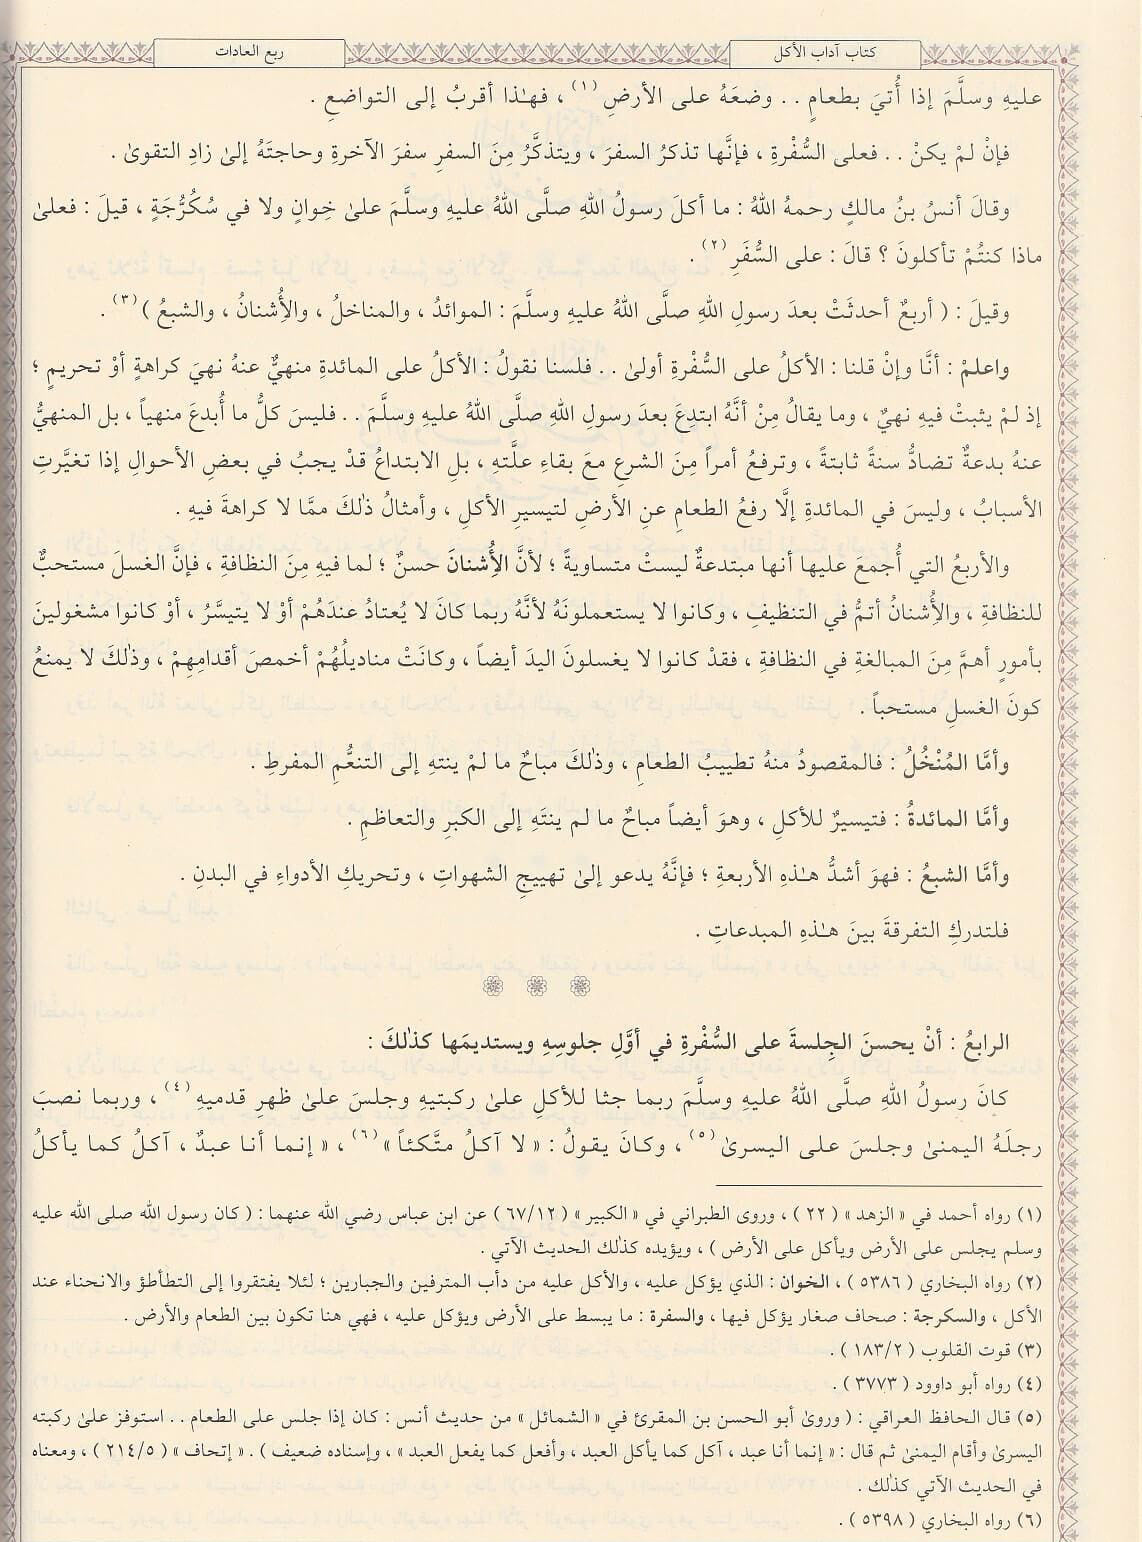 كتاب آداب الأكل
ربع العادات
عليهِ وسلَّمَ إذا أُتيَ بطعامٍ . . وضعَهُ على الأرضِ (١) ، فهـٰذا أقربُ إلى التواضعِ .
فإنْ لمْ يكنْ . . فعلى السُّفْرةِ ، فإنَّها تذكرُ السفرَ ، ويتذكَّرُ مِنَ السفرِ سفرَ الآخرةِ وحاجتَهُ إلىٰ زادِ التقوىٰ .
وقالَ أنسُ بنُ مالكٍ رحمهُ اللهُ : ما أكلَ رسولُ اللهِ صلَّى اللهُ عليهِ وسلَّمَ علىٰ خِوانٍ ولا في سُكُرُّجَةٍ ، قيلَ : فعلىٰ
ماذا كنتُمْ تأكلونَ ؟ قالَ : على السُّفَرِ (٢) .
وقيلَ : ( أربعٌ أحدثَتْ بعدَ رسولِ اللهِ صلَّى اللهُ عليهِ وسلَّمَ : الموائدُ ، والمناخلُ ، والأُشنانُ ، والشبعُ ) (٣) .
واعلمْ : أنَّا وإنْ قلنا : الأكلُ على السُّفْرةِ أولىٰ . . فلسنا نقولُ : الأكلُ على المائدةِ منهيٌّ عنهُ نهيَ كراهةٍ أوْ تحريمٍ ؛
إذ لمْ يثبتْ فيهِ نهيٌ ، وما يقالُ مِنْ أنَّهُ ابتدِعَ بعدَ رسولِ اللهِ صلَّى اللهُ عليهِ وسلَّمَ . . فليسَ كلُّ ما أُبدعَ منهياً ، بل المنهيُّ
عنهُ بدعةٌ تضادُّ سنةً ثابتةً ، وترفعُ أمراً مِنَ الشرعِ معَ بقاءِ علَّتهِ ، بلِ الابتداعُ قدْ يجبُ في بعضِ الأحوالِ إذا تغيَّرتِ
الأسبابُ ، وليسَ في المائدةِ إلَّا رفعُ الطعامِ عنِ الأرضِ لتيسيرِ الأكلِ ، وأمثالُ ذلكَ ممَّا لا كراهةَ فيهِ .
والأربعُ التي أُجمعَ عليها أنها مبتدعةٌ ليستْ متساويةً ؛ لأنَّ الأُشنانَ حسنٌ ؛ لما فيهِ مِنَ النظافةِ ، فإنَّ الغسلَ مستحبٌّ
للنظافةِ ، والأُشنانُ أتمُّ في التنظيفِ ، وكانوا لا يستعملونَهُ لأنَّهُ ربما كانَ لا يُعتادُ عندَهُمْ أوْ لا يتيسَّرُ ، أوْ كانوا مشغولينَ
بأمورٍ أهمَّ مِنَ المبالغةِ في النظافةِ ، فقدْ كانوا لا يغسلونَ اليدَ أيضاً ، وكانَتْ مناديلُهُمْ أخمصَ أقدامِهِمْ ، وذٰلكَ لا يمنعُ
كونَ الغسلِ مستحباً .
وأمَّا المُنْخُلُ : فالمقصودُ منهُ تطييبُ الطعامِ ، وذٰلكَ مباحٌ ما لمْ ينتهِ إلى التنعُّمِ المفرطِ .
وأمَّا المائدةُ : فتيسيرٌ للأكلِ ، وهوَ أيضاً مباحٌ ما لم ينتَهِ إلى الكبرِ والتعاظمِ .
وأمَّا الشبعُ : فهوَ أشدُّ هـٰذهِ الأربعةِ ؛ فإنَّهُ يدعو إلىٰ تهييجِ الشهواتِ ، وتحريكِ الأدواءِ في البدنِ .
فلتدركِ التفرقةَ بينَ هـٰذهِ المبدعاتِ .
الرابعُ : أنْ يحسنَ الجِلسةَ على السُّفْرةِ في أوَّلِ جلوسِهِ ويستديمَها كذٰلكَ :
كانَ رسولُ اللهِ صلَّى اللهُ عليهِ وسلَّمَ ربما جثا للأكلِ علىٰ ركبتيهِ وجلسَ علىٰ ظهرِ قدميهِ (٤) ، وربما نصبَ
رجلَهُ اليمنىٰ وجلسَ على اليسرىٰ (٥) ، وكانَ يقولُ : « لا آكلُ متَّكئاً » (٦) ، « إنما أنا عبدٌ ، آكلُ كما يأكلُ
(١) رواه أحمد في « الزهد » ( ٢٢ ) ، وروى الطبراني في « الكبير » ( ٦٧/١٢ ) عن ابن عباس رضي الله عنهما : ( كان رسول الله صلى الله عليه
وسلم يجلس على الأرض ويأكل على الأرض ) ، ويؤيده كذٰلك الحديث الآتي .
(٢) رواه البخاري ( ٥٣٨٦ ) ، الخوان : الذي يؤكل عليه ، والأكل عليه من دأب المترفين والجبارين ؛ لئلا يفتقروا إلى التطأطؤ والانحناء عند
الأكل ، والسكرجة : صحاف صغار يؤكل فيها ، والسفرة : ما يبسط على الأرض ويؤكل عليه ، فهي هنا تكون بين الطعام والأرض .
(٣) قوت القلوب ( ١٨٣/٢ ) .
(٤) رواه أبو داوود ( ٣٧٧٣ ) .
(٥) قال الحافظ العراقي : ( وروىٰ أبو الحسن بن المقرئ في « الشمائل » من حديث أنس : كان إذا جلس على الطعام . . استوفز علىٰ ركبته
اليسرىٰ وأقام اليمنىٰ ثم قال : « إنما أنا عبد ، آكل كما يأكل العبد ، وأفعل كما يفعل العبد » ، وإسناده ضعيف ) . « إتحاف » ( ٢١٤/٥ ) ، ومعناه
في الحديث الآتي كذٰلك .
(٦) رواه البخاري ( ٥٣٩٨ ) .